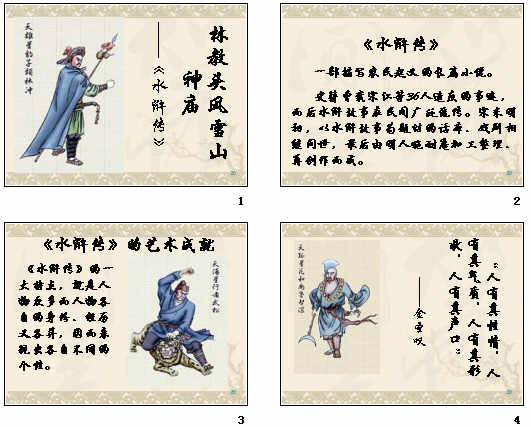 林教头风雪山
神庙
——《水浒传》
天雄星豹子头林冲
1
《水浒传》
一部描写农民起义的长篇小说。
史籍曾载宋江等36人造反的事迹,
而后水浒故事在民间广泛流传。宋末明
初,以水浒故事为题材的话本、戏剧相
继问世,最后由明人施耐庵加工整理、
再创作而成。
2
《水浒传》的艺术成就
《水浒传》的一
大特点,就是人
物众多而人物各
自的身份、经历
又各异,因而表
现出各自不同的
个性。
天伤星行者武松
3
“人有其性情,人
有其气质,人有其形
状,人有其声口”
——金圣叹
天孤星花和尚鲁智深
4